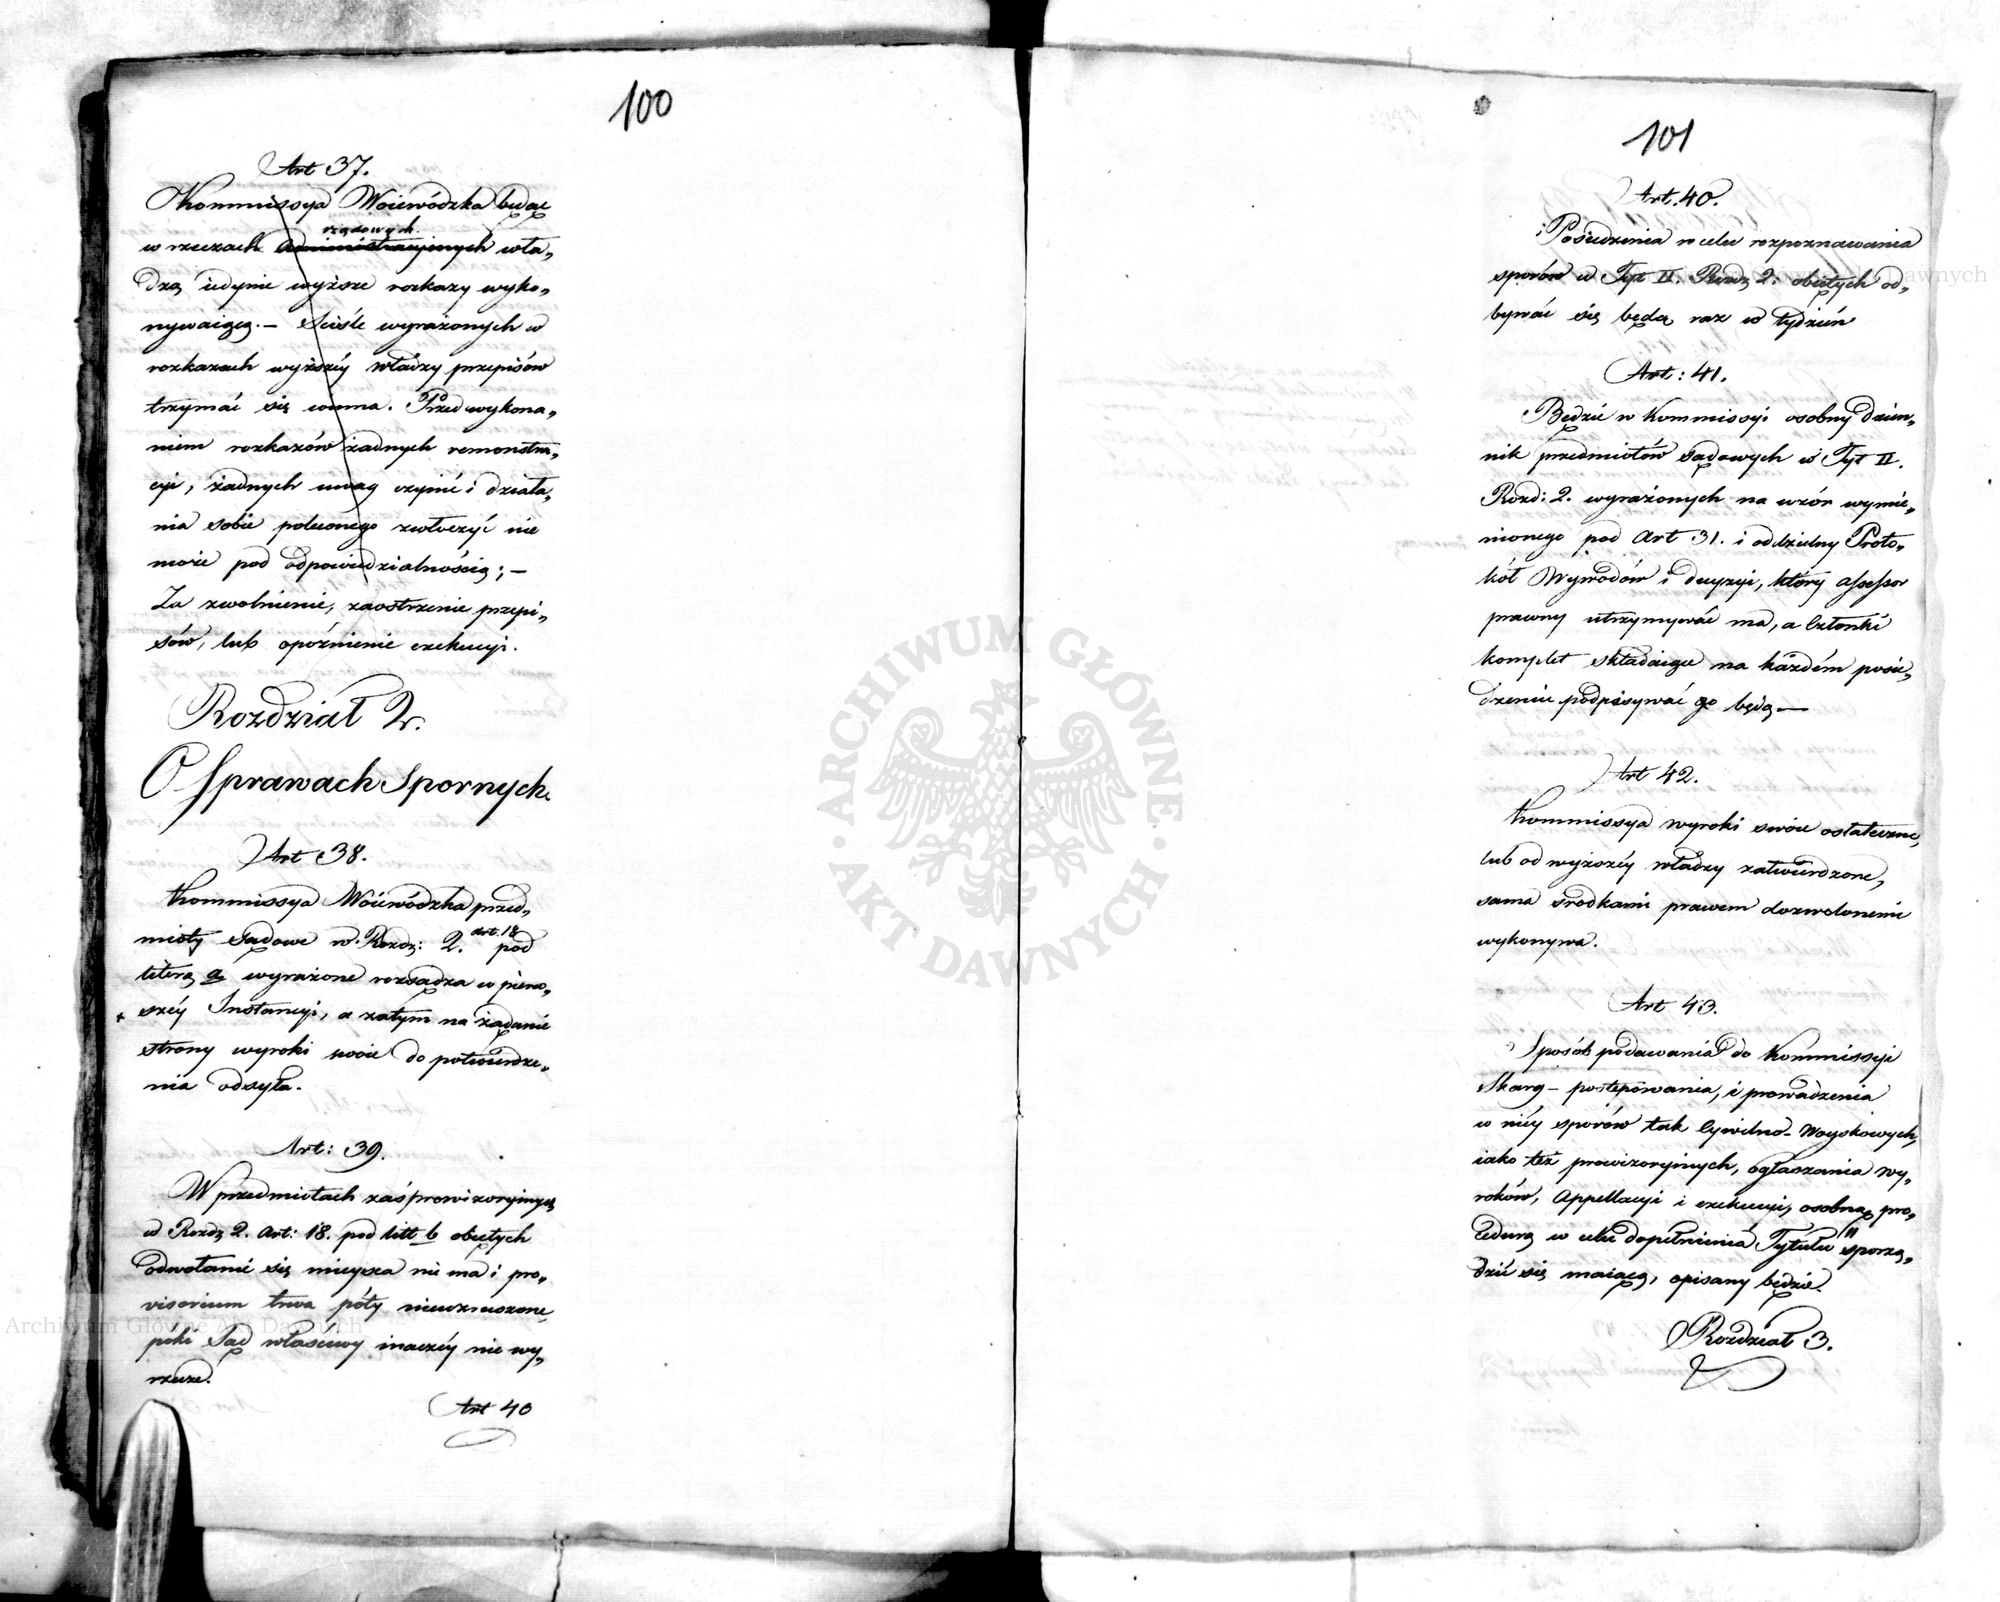 100
Art 37.
Kommissya Woiewódzka będąc
rządowych
w rzeczach administracyinych wła„
dzą iedynie wyższe rozkazy wyko„
nywaiącą. – Sciśle wyrażonych w
rozkazach wyższéy władzy przepisów
trzymać się winna. Przed wykona„
niem rozkazów żadnych remonstra„
cyi, żadnych uwag czynić i działa„
nia sobie poleconego zwłoczyć nie
może pod odpowiedzialnością; –
Za zwolnienie, zaostrzenie przepi„
sów, lub opóźnienie exekucyi.
Rozdział 2.
O Sprawach Spornych.
Art 38.
Kommissya Woiewódzka przed„
art. 18
mioty Sądowe w Rozdz: 2. pod
literą a wyrażone rozsądza w pierw„
széy Instancyi, a zatym na żądanie
strony wyroki swoie do potwierdze„
nia odsyła.
Art: 39.
W przedmiotach zaś prowizoryinych
w Rozdz 2. Art: 18. pod litt b obiętych
odwołanie się mieysca nie ma i pro„
visorium trwa póty niewzruszone,
póki Sąd właściwy inaczéy nie wy„
rzecze.
Art 40
101
Art. 40.
Posiedzenia w celu rozpoznawania
sporów w Tyt II. Rozdz 2. obiętych od„
bywać się będą raz w tydzień
Art: 41.
Będzie w Kommissyi osobny dzien„
nik przedmiotów Sądowych w Tyt II.
Rozd: 2. wyrażonych na wzór wymie„
nionego pod Art 31. i oddzielny Proto„
kół Wywodów i decyzyi, który assessor
prawny utrzymywać ma, a Członki
komplet składaiące na każdém posie„
dzeniu podpisywać go będą —
Art 42.
Kommissya wyroki swoie ostateczne,
lub od wyższéy władzy zatwierdzone,
sama srodkami prawem dozwolonemi
wykonywa.
Art 43.
Sposób podawania do Kommissyi
Skarg – postępowania, i prowadzenia
w niéy sporów tak Cywilno-Woyskowych,
iako też prowizoryinych, ogłaszania wy„
roków, Appellacyi i exekucyi, osobną pro„
cedurą w celu dopełnienia Tytułu II sporzą„
dzić się maiącą, opisany będzie.
Rozdział 3.
ARCHIWUM GŁÓWNE
AKT DAWNYCH
Archiwum Główne Akt Dawnych